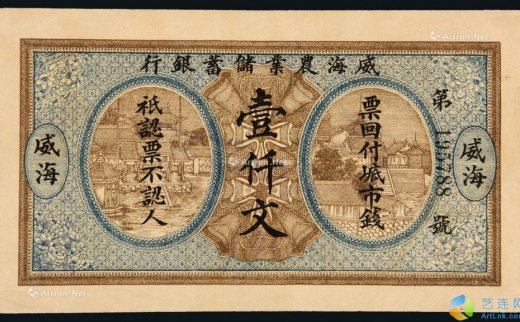 威海農業儲蓄銀行
第
號
威海
票回付城市錢
壹仟文
祇認票不認人
威海
Artron.Net
Artron.Net
艺连网
ArtLnk.com